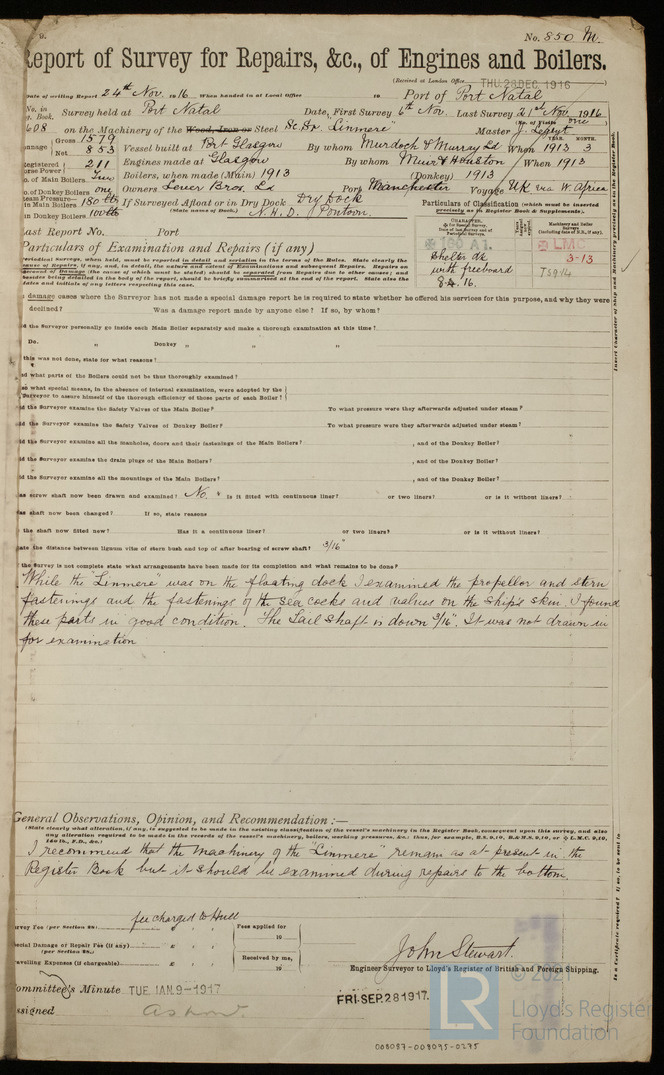 9.
No. 850 M.
Report of Survey for Repairs, &c., of Engines and Boilers.
(Received at London Office THU. 28 DEC 1916
Date of writing Report 24th Nov. 1916 When handed in at Local Office 19 Port of Port Natal
No. in Reg. Book. Survey held at Port Natal Date, First Survey 6th Nov. Last Survey 21st Nov. 1916
608 on the Machinery of the Wood, Iron or Steel Sc Sr. "Linmere" (No. of Visits one)
Master J.
Tonnage Gross 1579 Net 853 Vessel built at Port Glasgow By whom Murdock & Murray Ld When 1913 3
YEAR. MONTH.
Registered Horse Power 211 Engines made at Glasgow By whom Muir & Houston When 1913
No. of Main Boilers Two Boilers, when made (Main) 1913 (Donkey) 1913
No. of Donkey Boilers One Owners Lever Bros. Ld Port Manchester Voyage UK via W. Africa
Steam Pressure in Main Boilers 180 lb If Surveyed Afloat or in Dry Dock Dry Dock
in Donkey Boilers 100 lb (State name of Dock.) N. H. D. Pontoon.
Particulars of Classification (which must be inserted precisely as in Register Book & Supplements).
Last Report No. Port
Particulars of Examination and Repairs (if any)
100 A1.
Shelter dk
with freeboard
8.4.16.
LMC
3-13
TS9.14
In damage cases where the Surveyor has not made a special damage report he is required to state whether he offered his services for this purpose, and why they were
declined? Was a damage report made by anyone else? If so, by whom?
Did the Surveyor personally go inside each Main Boiler separately and make a thorough examination at this time?
Do. „ Donkey „ „ „
If this was not done, state for what reasons?
And what parts of the Boilers could not be thus thoroughly examined?
Also what special means, in the absence of internal examination, were adopted by the
Surveyor to assure himself of the thorough efficiency of those parts of each Boiler?
Did the Surveyor examine the Safety Valves of the Main Boiler? To what pressure were they afterwards adjusted under steam?
Did the Surveyor examine the Safety Valves of Donkey Boiler? To what pressure were they afterwards adjusted under steam?
Did the Surveyor examine all the manholes, doors and their fastenings of the Main Boilers? , and of the Donkey Boiler?
Did the Surveyor examine the drain plugs of the Main Boilers? , and of the Donkey Boiler?
Did the Surveyor examine all the mountings of the Main Boilers? , and of the Donkey Boiler?
Has screw shaft now been drawn and examined? No. Is it fitted with continuous liner? or two liners? or is it without liners?
Has shaft now been changed? If so, state reasons
Is the shaft now fitted new? Has it a continuous liner? or two liners? or is it without liners?
State the distance between lignum vitæ of stern bush and top of after bearing of screw shaft? 3/16"
If the Survey is not complete state what arrangements have been made for its completion and what remains to be done?
While the "Linmere" was on the floating dock I examined the propellor and stern
fastenings and the fastenings of the sea cocks and valves on the ship's skin. I found
these parts in good condition. The Tail Shaft is down 3/16". It was not drawn in
for examination
General Observations, Opinion, and Recommendation:—
(State clearly what alteration, if any, is suggested to be made in the existing classification of the vessel's machinery in the Register Book, consequent upon this survey, and also
any alteration required to be made in the records of the vessel's machinery, boilers, working pressures, &c.; thus, for example, B.S. 9,10, B.&M.S. 9,10, or L.M.C. 9,10,
140 lb., F.D., &c.)
I recommend that the machinery of the "Linmere" remain as at present in the
Register Book but it should be examined during repairs to the bottom.
Survey Fee (per Section 28) fee charged to Hull Fees applied for
19
Special Damage or Repair Fee (if any) £ : :
(per Section 28.)
Travelling Expenses (if chargeable) £ : : Received by me,
19
John Stewart.
Engineer Surveyor to Lloyd's Register of British and Foreign Shipping.
Committee's Minute TUE. JAN. 9 - 1917
FRI. SEP. 28 1917.
Assigned As now.
© 2021
LR
Lloyd's Register
Foundation
008087-008095-0275